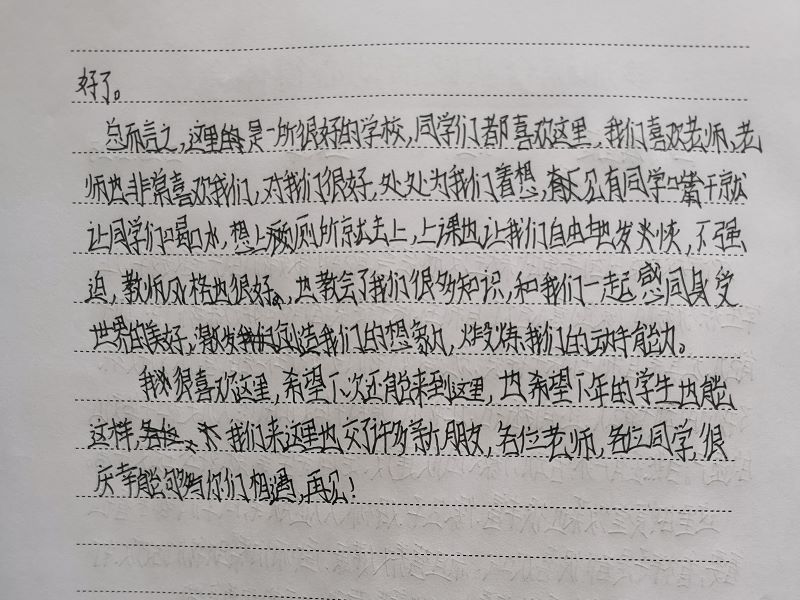 好了。
总而言之,这里是一所很好的学校,同学们都喜欢这里,我们喜欢老师,老
师也非常喜欢我们,对我们很好,处处为我们着想,有同学口嘴干就
让同学们喝水,想上厕所就去上,上课也让我们自由地发火快,不强
迫,教师风格也很好,也教会了我们很多知识,和我们一起感同身受
世界的美好,激发我们创造我们的想象力,火锻炼我们的动手能力。
我很喜欢这里,希望下次还能来到这里,也希望下年的学生也能
这样,我们来这里也交了许多新朋友,各位老师,各位同学,很
庆幸能够与你们相遇,再见!